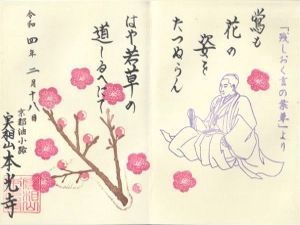 「残しおく言の葉草」より
鶯も
花の
姿を
たつぬらん
はや若草の
道しるへにて
令和四年二月十八日
京都油小路
実相山本光寺